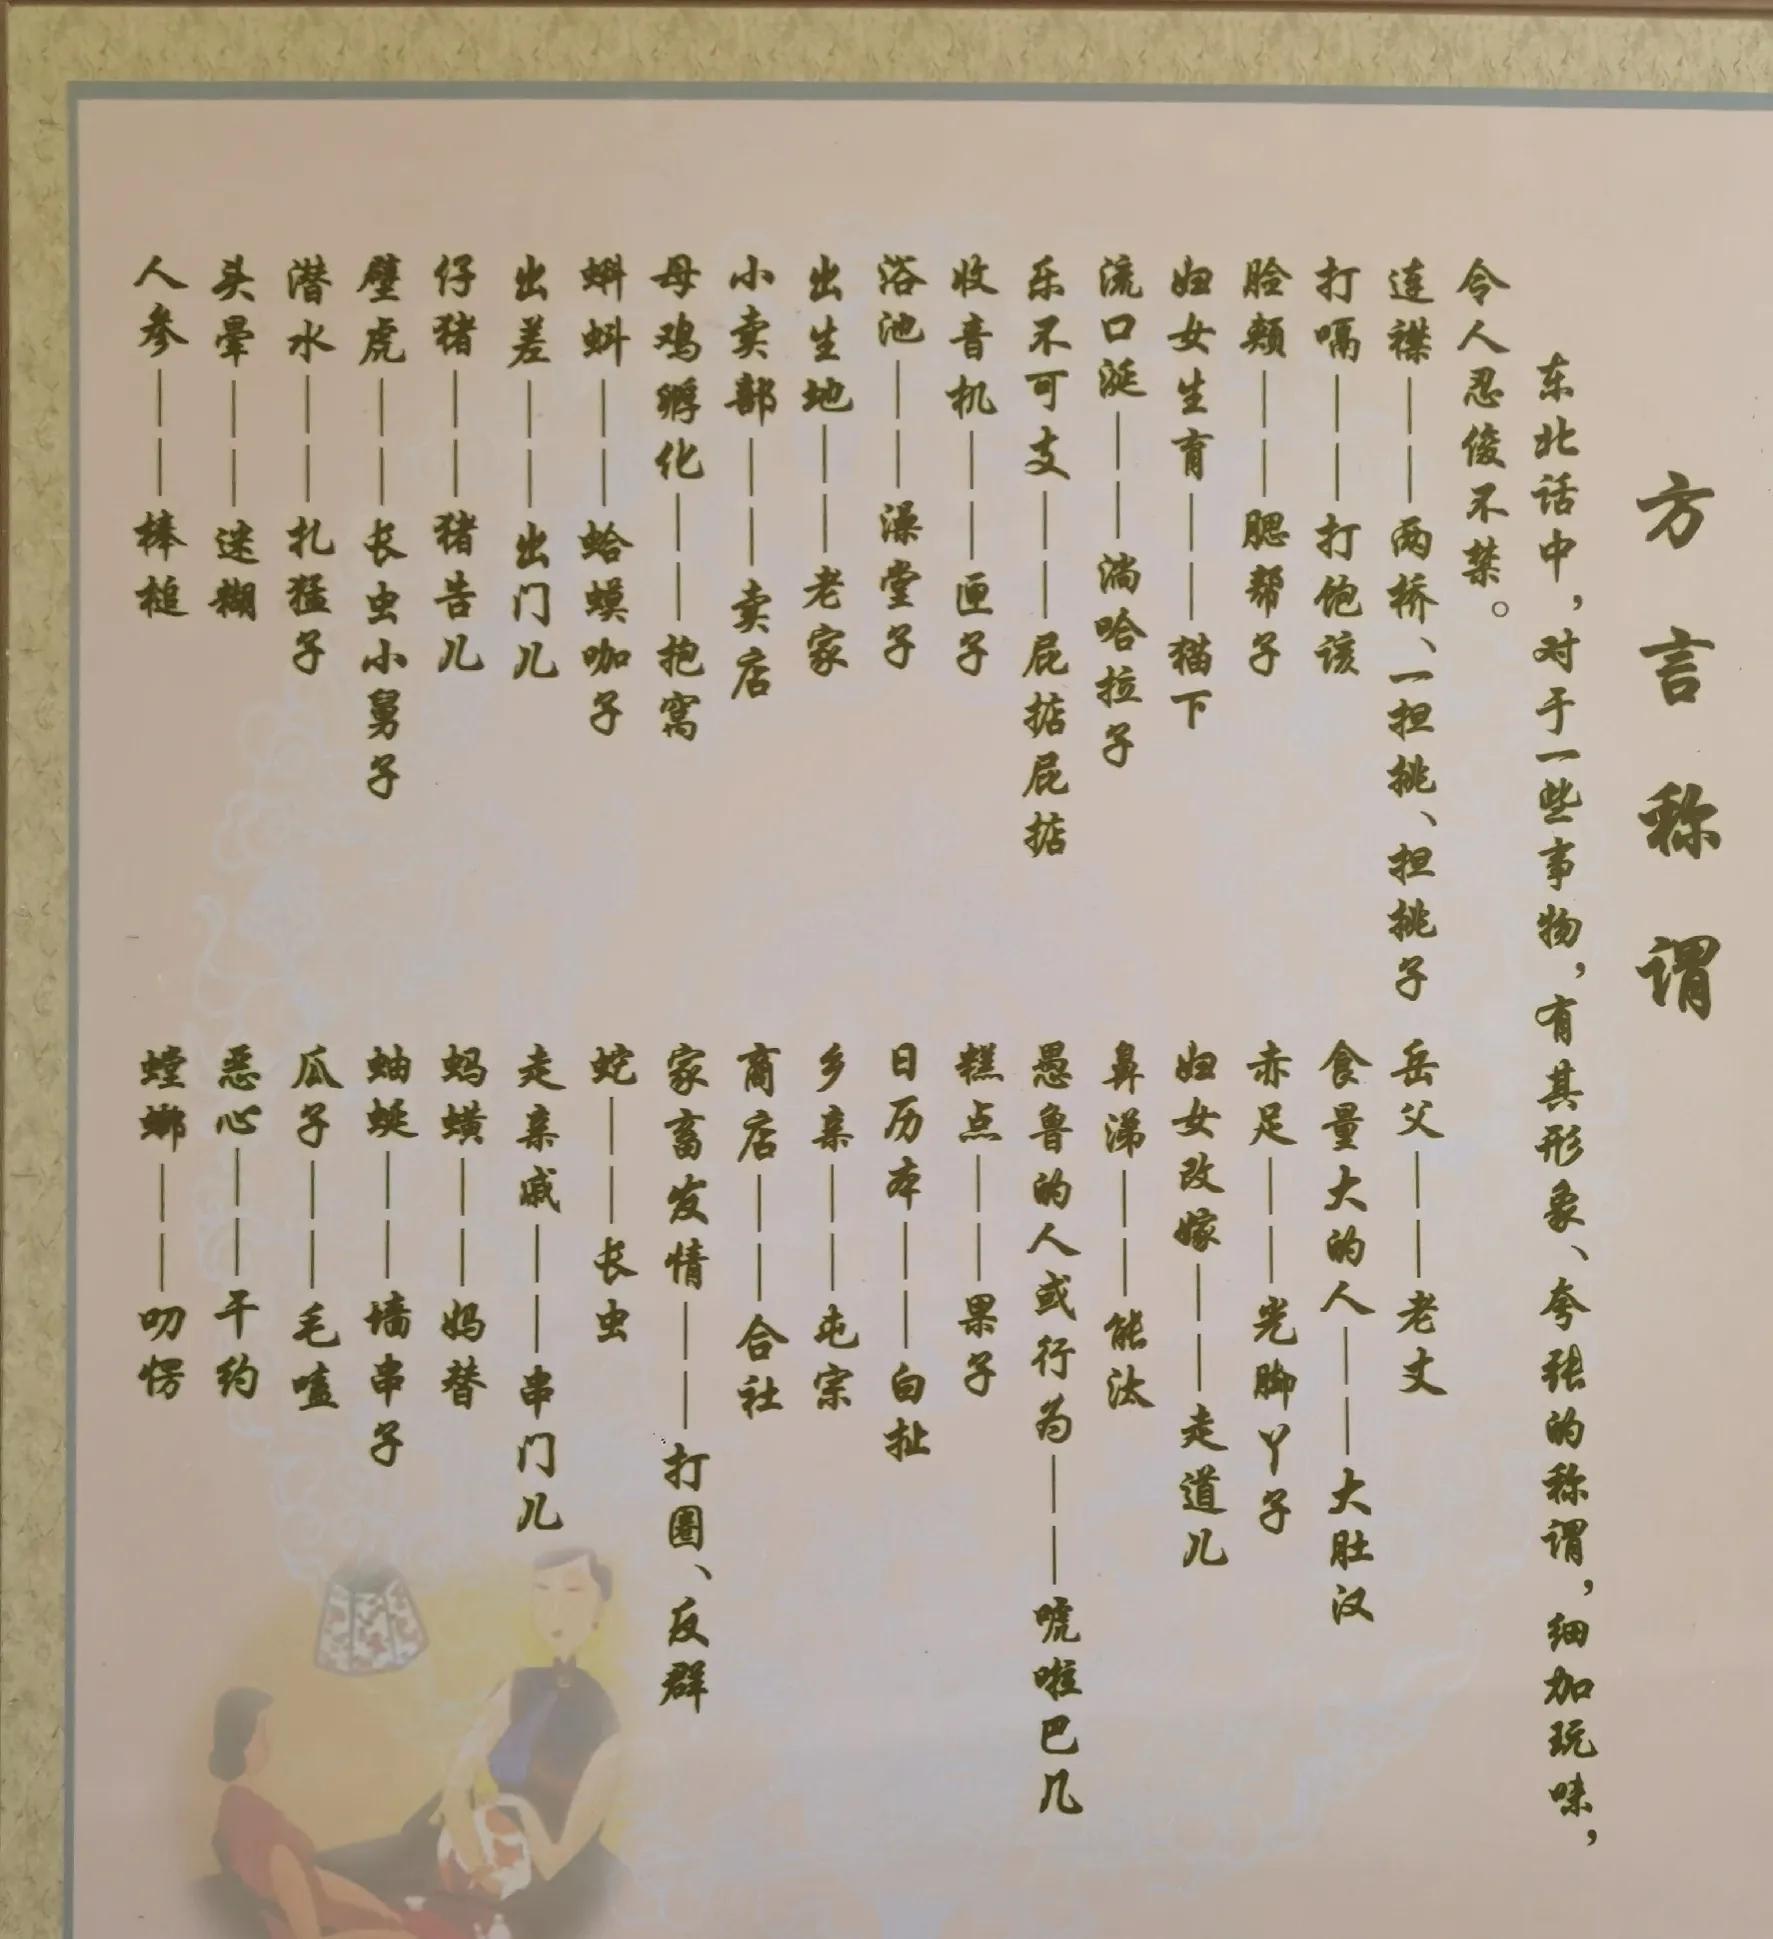 方言称谓
东北话中，对于一些事物，有其形象、夸张的称谓，细加玩味，
令人忍俊不禁。
连襟———两桥、一担挑、担挑子
打嗝———打饱该
脸颊———腮帮子
妇女生育———猫下
流口涎———淌哈拉子
乐不可支———屁掂屁掂
收音机———匣子
浴池———澡堂子
出生地———老家
小卖部———卖店
母鸡孵化———抱窝
蝌蚪———蛤蟆咖子
出差———出门儿
仔猪———猪告儿
壁虎———长虫小舅子
潜水———扎猛子
头晕———迷糊
人参———棒槌
岳父———老丈
食量大的人———大肚汉
赤足———光脚丫子
妇女改嫁———走道儿
鼻涕———能汰
愚鲁的人或行为———唬啦巴几
糕点———果子
日历本———白扯
乡亲———屯宗
商店———合社
家畜发情———打圈、反群
蛇———长虫
走亲戚———串门儿
蚂蟥———妈替
蚰蜒———墙串子
瓜子———毛嗑
恶心———干约
螳螂———叨愣